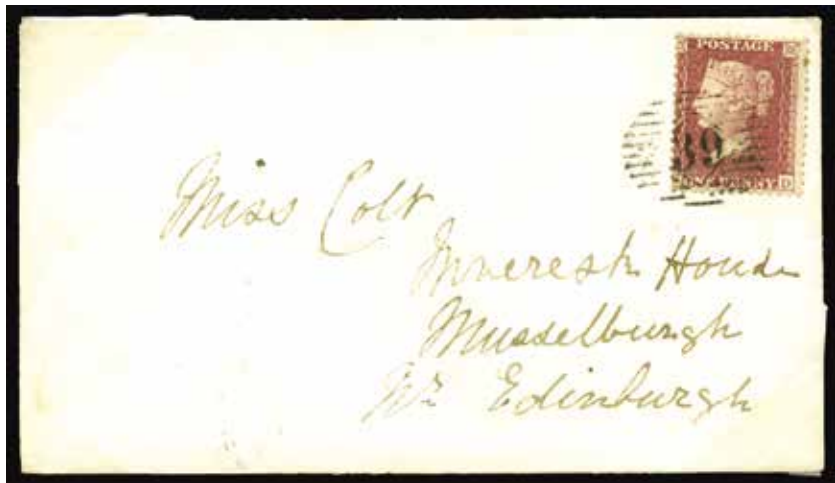 POSTAGE
39
ONE PENNY
D
Miss Colt
Inveresk House
Musselburgh
Nr Edinburgh